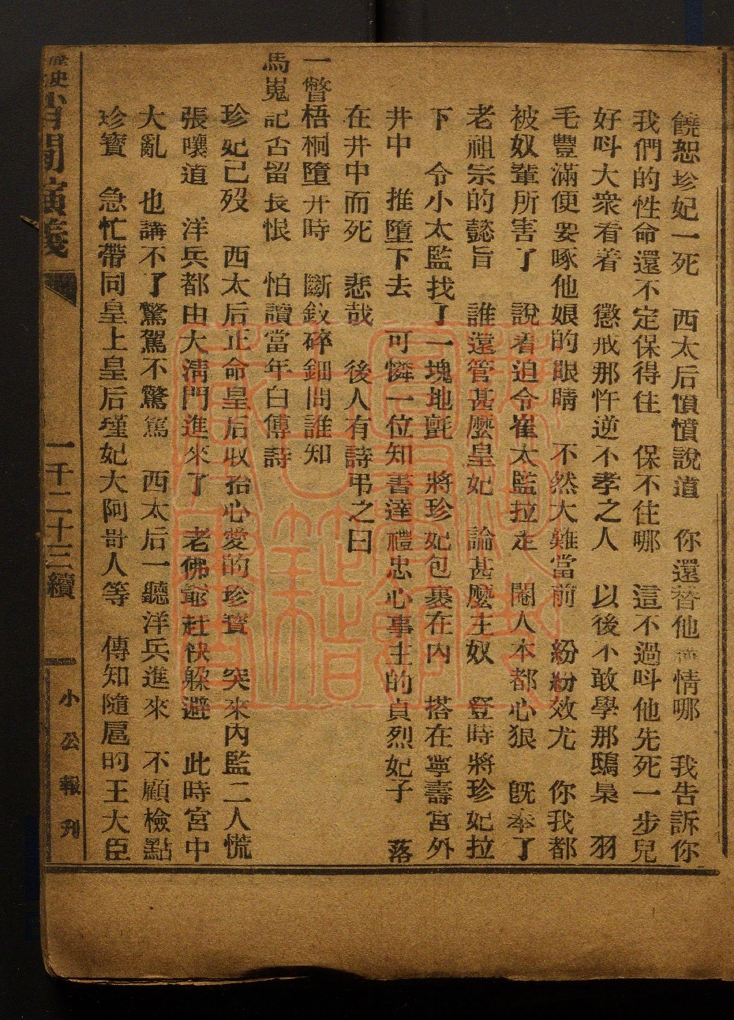 饒恕珍妃一死　西太后憤憤說道　你還替他情哪　我告訴你
我們的性命還不定保得住　保不住哪　這不過呌他先死一步兒
好呌大衆看着　懲戒那忤逆不孝之人　以後不敢學那鴟梟　羽
毛豐滿便要啄他娘的眼睛　不然大難當前　紛紛效尤　你我都
被奴輩所害了　說着迫令崔太監拉走　閹人本都心狠　旣奉了
老祖宗的懿旨　誰還管甚麼皇妃　論甚麼主奴　登時將珍妃拉
下　令小太監找了一塊地氈　將珍妃包裹在內　搭在寧壽宮外
井中　推墮下去　可憐一位知書達禮忠心事主的貞烈妃子　落
在井中而死　悲哉　後人有詩弔之曰
一瞥梧桐墮井時　斷釵碎鈿問誰知
馬嵬記否留長恨　怕讀當年白傅詩
珍妃已歿　西太后正命皇后收拾心愛的珍寶　突來內監二人慌
張嚷道　洋兵都由大淸門進來了　老佛爺赶快躲避　此時宮中
大亂　也講不了驚駕不驚駕　西太后一聽洋兵進來　不顧檢點
珍寶　急忙帶同皇上皇后瑾妃大阿哥人等　傳知隨扈的王大臣
歷史消閒演義
一千二十三續
小公報刊